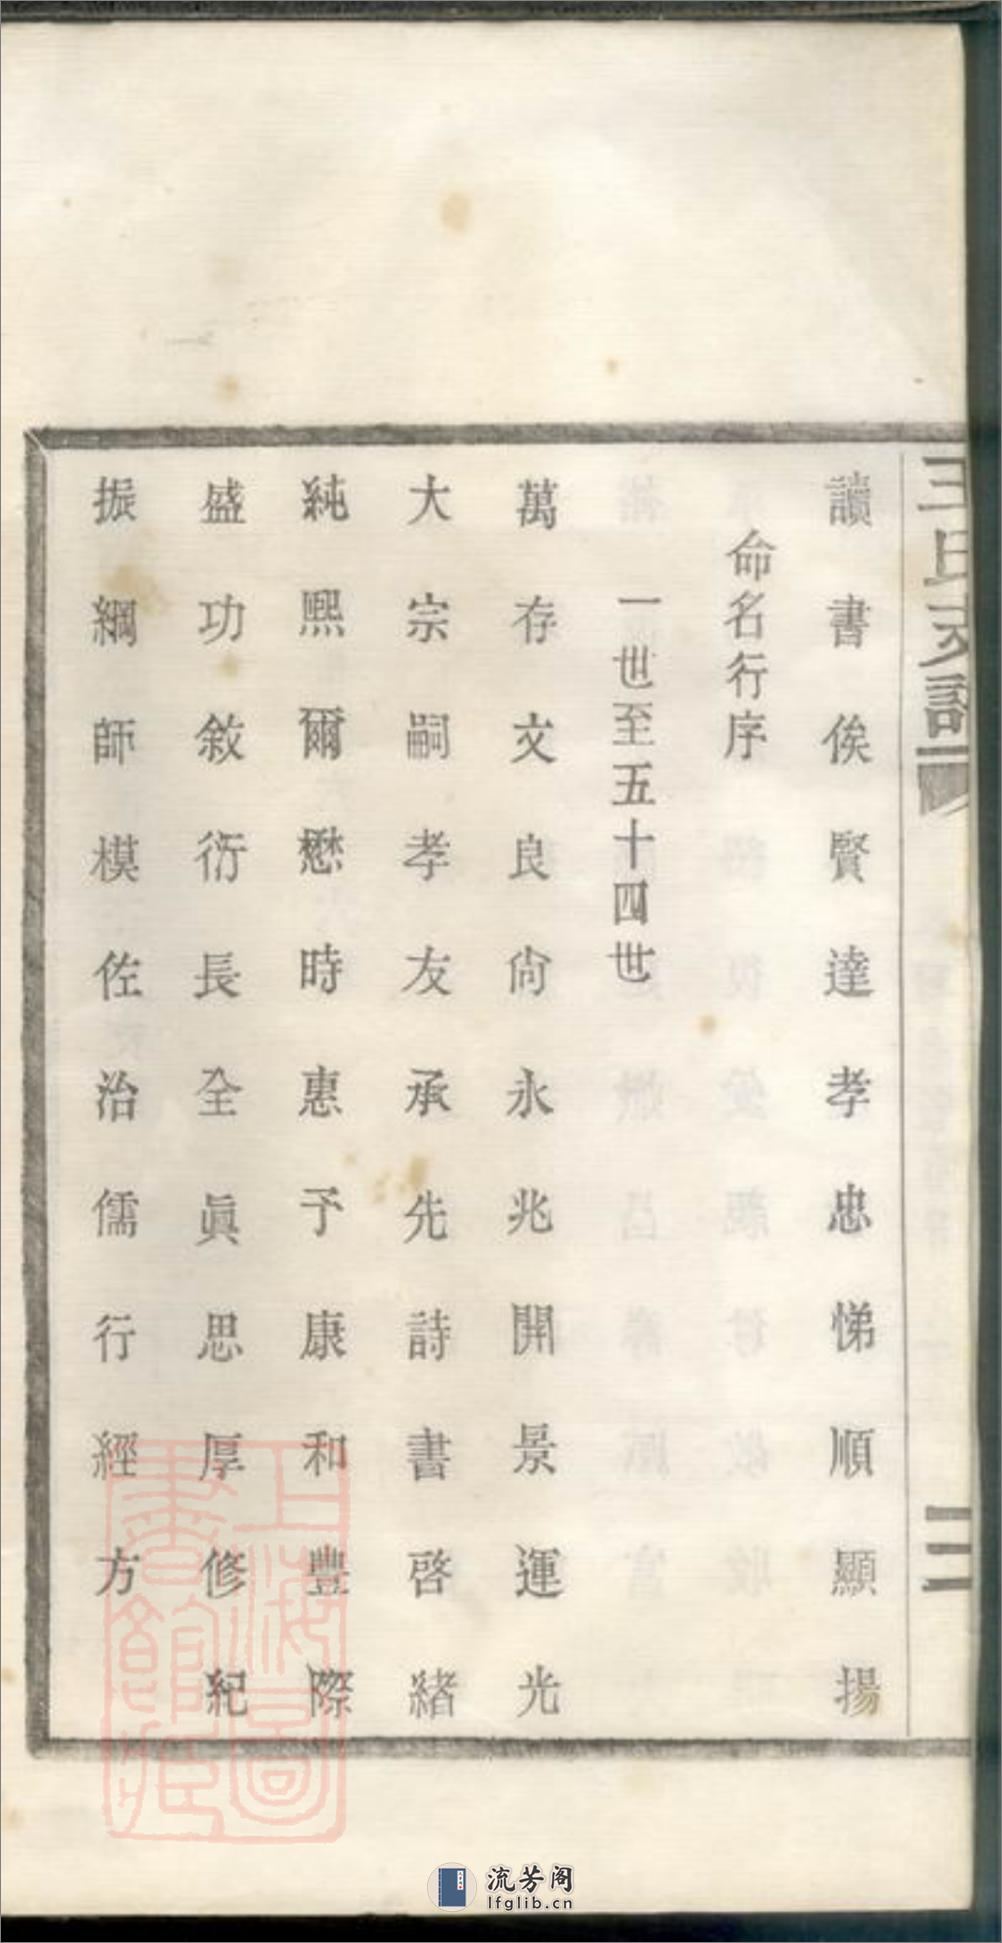 王氏支譜
二
讀書俟賢達孝忠悌順顯揚
命名行序
一世至五十四世
萬存文良尙永兆開景運光
大宗嗣孝友承先詩書啓緒
純熙爾懋時惠予康和豐際
盛功敘衍長全眞思厚修紀
振綱師模佐治儒行經方
上海圖
書館藏
流芳阁
lfglib.cn